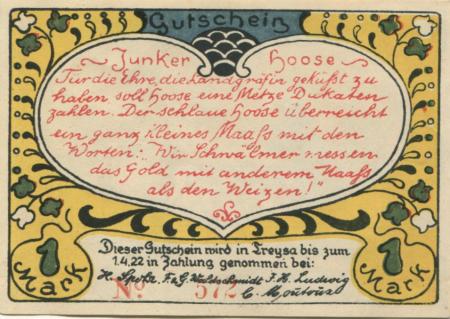 Gutschein
Junker Hoose
Für die Ehre, die Landgräfin geküßt zu
haben soll Hoose eine Metze Dukaten
zahlen. Der schlaue Hoose überreicht
ein ganz kleines Maaß mit den
Worten: „Wir Schwälmer messen
das Gold mit anderem Maaß
als den Weizen!"
Dieser Gutschein wird in Treysa bis zum
1.4.22 in Zahlung genommen bei:
F. & G. Waldschmidt F. H. Ludwig
No. 572
1 Mark
1 Mark